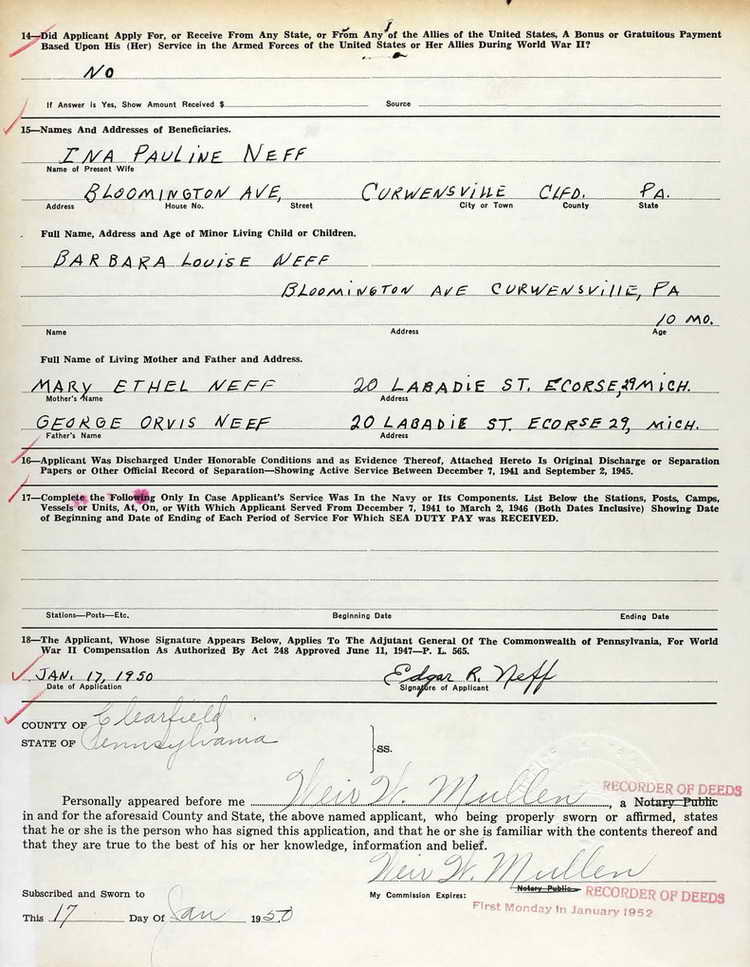 14—Did Applicant Apply For, or Receive From Any State, or From Any of the Allies of the United States, A Bonus or Gratuitous Payment
Based Upon His (Her) Service in the Armed Forces of the United States or Her Allies During World War II?
NO
If Answer is Yes, Show Amount Received $ Source
15—Names And Addresses of Beneficiaries.
INA PAULINE NEFF
Name of Present Wife
BLOOMINGTON AVE, CURWENSVILLE CLFD. PA.
Address House No. Street City or Town County State
Full Name, Address and Age of Minor Living Child or Children.
BARBARA LOUISE NEFF
BLOOMINGTON AVE CURWENSVILLE, PA
10 MO.
Name Address Age
Full Name of Living Mother and Father and Address.
MARY ETHEL NEFF 20 LABADIE ST. ECORSE, 29 MICH.
Mother's Name Address
GEORGE ORVIS NEFF 20 LABADIE ST. ECORSE 29, MICH.
Father's Name Address
16—Applicant Was Discharged Under Honorable Conditions and as Evidence Thereof, Attached Hereto Is Original Discharge or Separation
Papers or Other Official Record of Separation—Showing Active Service Between December 7, 1941 and September 2, 1945.
17—Complete the Following Only In Case Applicant's Service Was In the Navy or Its Components. List Below the Stations, Posts, Camps,
Vessels or Units, At, On, or With Which Applicant Served From December 7, 1941 to March 2, 1946 (Both Dates Inclusive) Showing Date
of Beginning and Date of Ending of Each Period of Service For Which SEA DUTY PAY was RECEIVED.
Stations—Posts—Etc. Beginning Date Ending Date
18—The Applicant, Whose Signature Appears Below, Applies To The Adjutant General Of The Commonwealth of Pennsylvania, For World
War II Compensation As Authorized By Act 248 Approved June 11, 1947—P. L. 565.
JAN. 17, 1950 Edgar R. Neff
Date of Application Signature of Applicant
COUNTY OF Clearfield
STATE OF Pennsylvania
SS.
Personally appeared before me Weir W. Mullen, a Notary Public RECORDER OF DEEDS
in and for the aforesaid County and State, the above named applicant, who being properly sworn or affirmed, states
that he or she is the person who has signed this application, and that he or she is familiar with the contents thereof and
that they are true to the best of his or her knowledge, information and belief.
Weir W. Mullen
Subscribed and Sworn to Notary Public RECORDER OF DEEDS
My Commission Expires:
First Monday in January 1952
This 17 Day Of Jan 1950